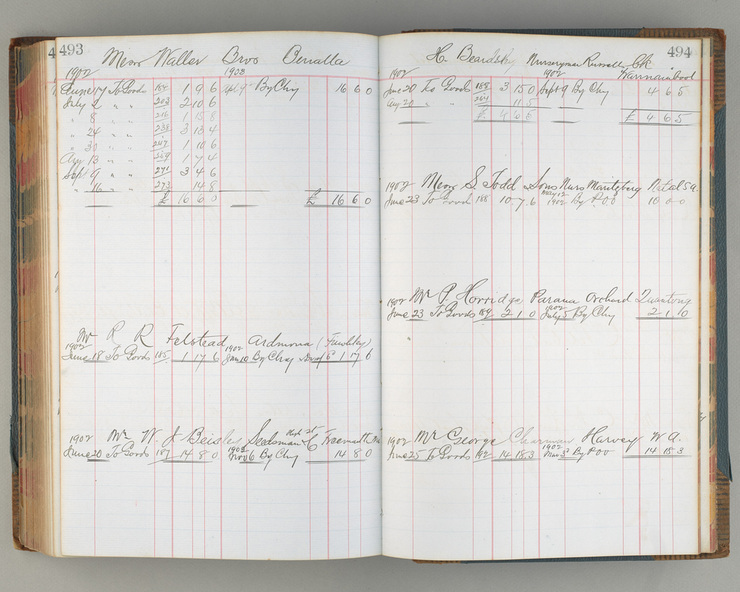 493
Messrs Waller Bros Benalla
1902 1903
June 17 To Goods 184 1 9 6 By Chq 16 6 0
July 2 " " 203 2 10 6
" 8 " " 216 1 15 8
" 24 " " 3 13 4
" 30 " " 247 1 10 6
Aug 13 " " 259 1 7 4
Sept 9 " " 271 3 4 6
" 16 " " 273 14 8
£ 16 6 0 £ 16 6 0
Mr R R Felstead Ardmona
1902 1902
June 18 To Goods 185 1 17 6 Jan 10 By Chq 1 17 6
Mr W. J Beisler Seedsman High St Fremantle
1902 1903
June 20 To Goods 187 14 8 0 Nov 6 By Chq 14 8 0
494
H. Beardsley Nurseryman Russell St
1902 1902 Warrnambool
June 20 To Goods 188 3 15 0 Sept 9 By Chq 4 6 5
Aug 20 " " 264 11 5
£ 4 6 5 £ 4 6 5
1902 Messrs S. Todd & Sons Nurs Maritzburg Natal S a.
June 23 To Goods 188 10 7 6 1902 By P.O.O 10 0 0
1902 Mr P Horridge, Parawa Orchard Quantong
1902
June 23 To Goods 189 2 1 0 July 5 By Chq 2 1 0
1902 Mr George Charman Harvey W a.
1902
June 25 To Goods 192 14 18 3 By P.O.O 14 18 3